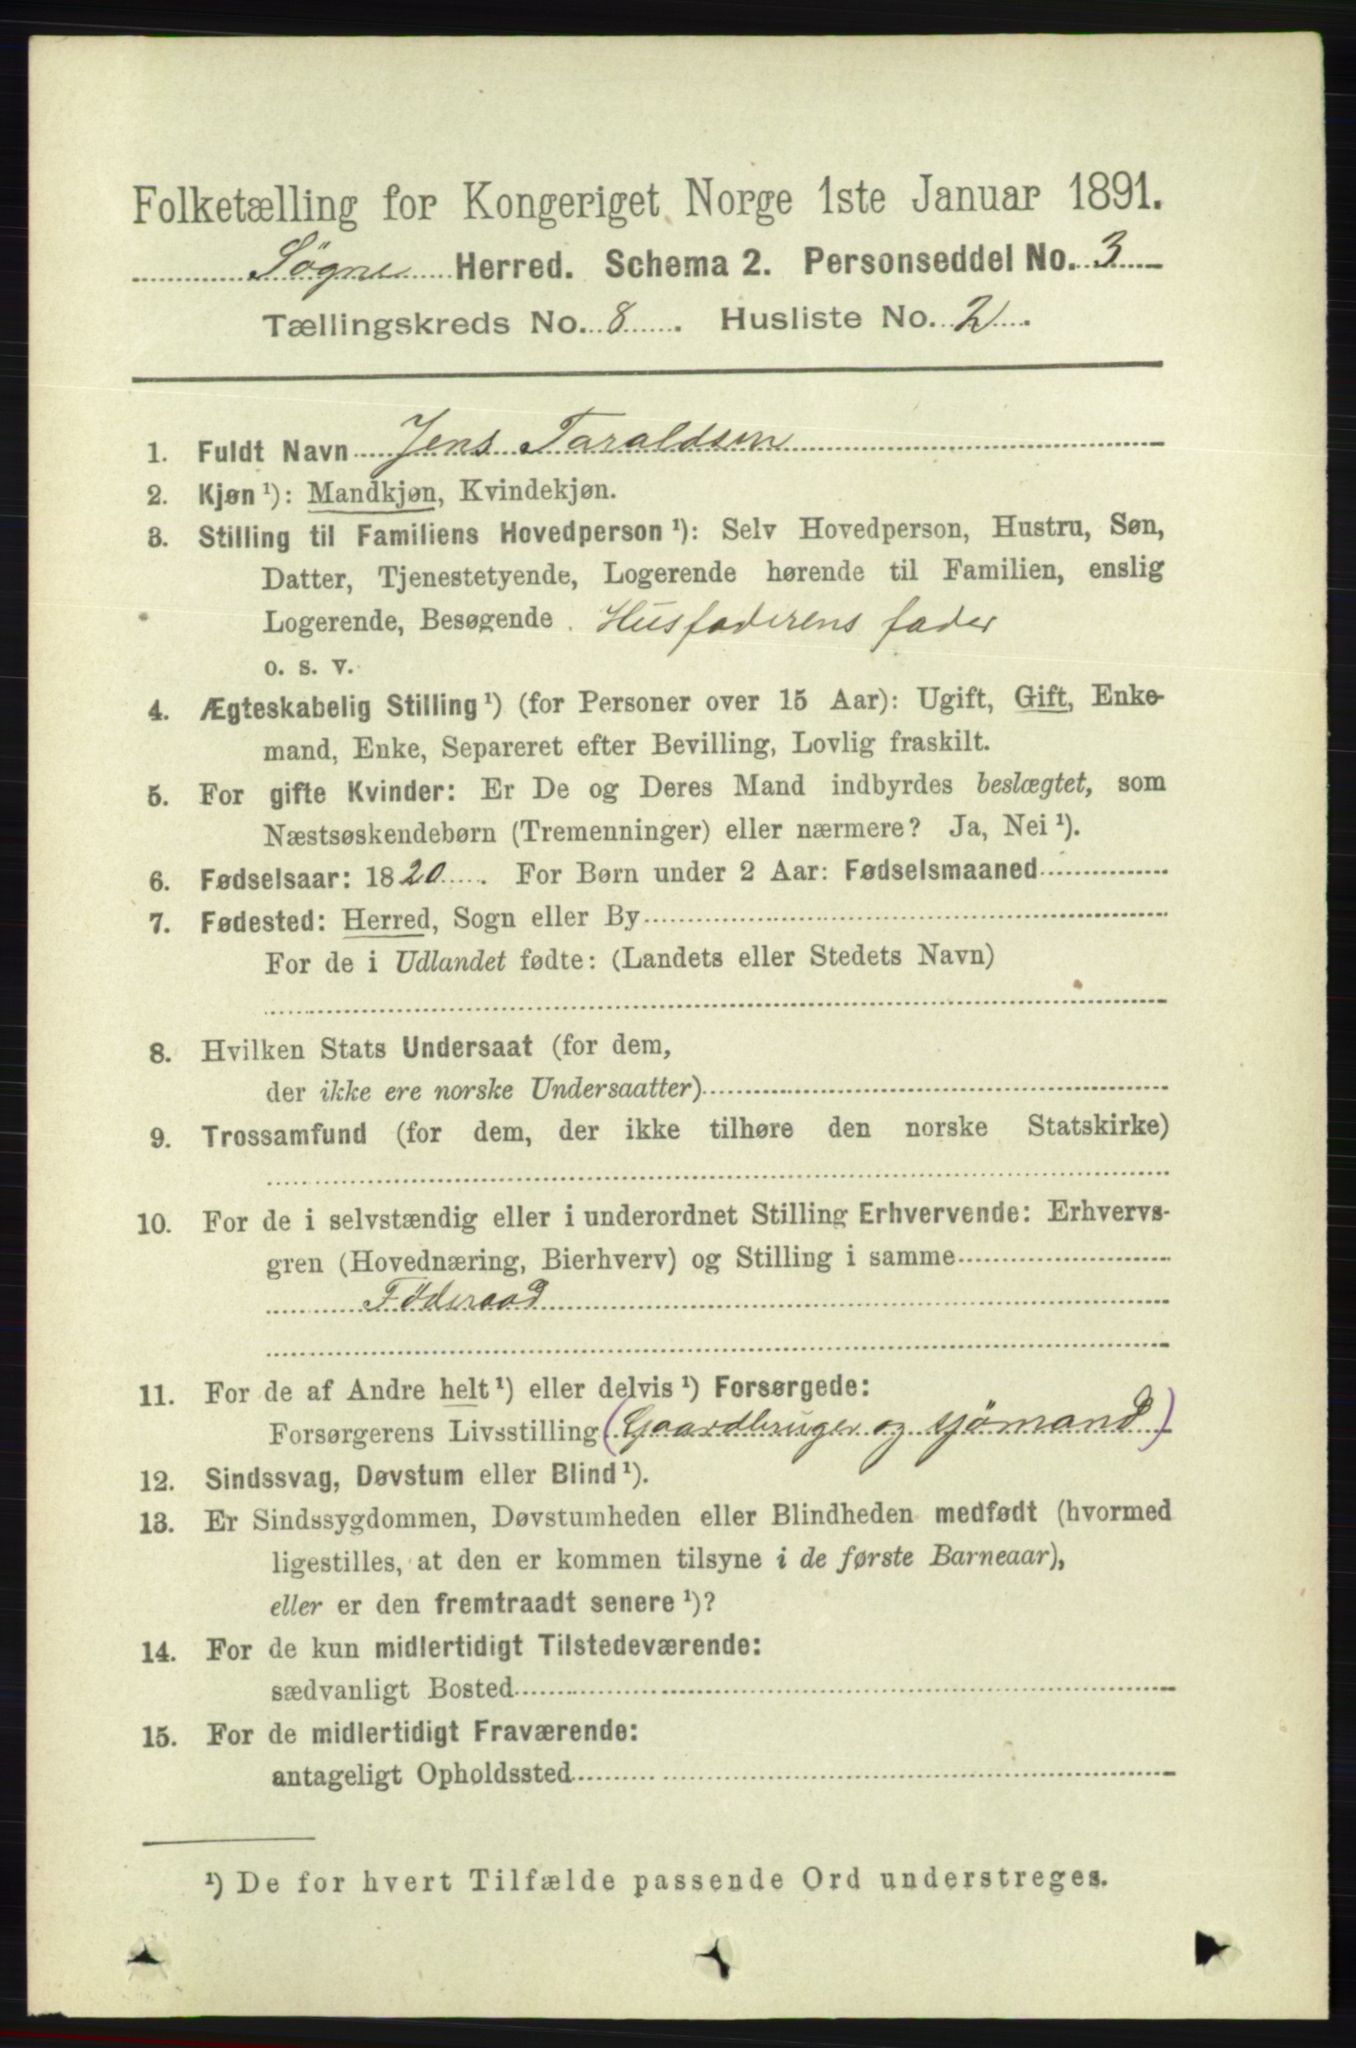 Folketælling for Kongeriget Norge 1ste Januar 1891.
Søgne Herred. Schema 2. Personseddel No. 3
Tællingskreds No. 8. Husliste No. 2.
1. Fuldt Navn Jens Taraldsen
2. Kjøn¹): Mandkjøn, Kvindekjøn.
3. Stilling til Familiens Hovedperson¹): Selv Hovedperson, Hustru, Søn,
Datter, Tjenestetyende, Logerende hørende til Familien, enslig
Logerende, Besøgende. Husfaderens fader
o. s. v.
4. Ægteskabelig Stilling¹) (for Personer over 15 Aar): Ugift, Gift, Enke-
mand, Enke, Separeret efter Bevilling, Lovlig fraskilt.
5. For gifte Kvinder: Er De og Deres Mand indbyrdes beslægtet, som
Næstsøskendebørn (Tremenninger) eller nærmere? Ja, Nei¹).
6. Fødselsaar: 1820. For Børn under 2 Aar: Fødselsmaaned
7. Fødested: Herred, Sogn eller By
For de i Udlandet fødte: (Landets eller Stedets Navn)
8. Hvilken Stats Undersaat (for dem,
der ikke ere norske Undersaatter)
9. Trossamfund (for dem, der ikke tilhøre den norske Statskirke)
10. For de i selvstændig eller i underordnet Stilling Erhvervende: Erhvervs-
gren (Hovednæring, Bierhverv) og Stilling i samme
Föderaad
11. For de af Andre helt¹) eller delvis¹) Forsørgede:
Forsørgerens Livsstilling (Gaardbruger og sjömand)
12. Sindssvag, Døvstum eller Blind¹).
13. Er Sindssygdommen, Døvstumheden eller Blindheden medfødt (hvormed
ligestilles, at den er kommen tilsyne i de første Barneaar),
eller er den fremtraadt senere¹)?
14. For de kun midlertidigt Tilstedeværende:
sædvanligt Bosted
15. For de midlertidigt Fraværende:
antageligt Opholdssted
¹) De for hvert Tilfælde passende Ord understreges.